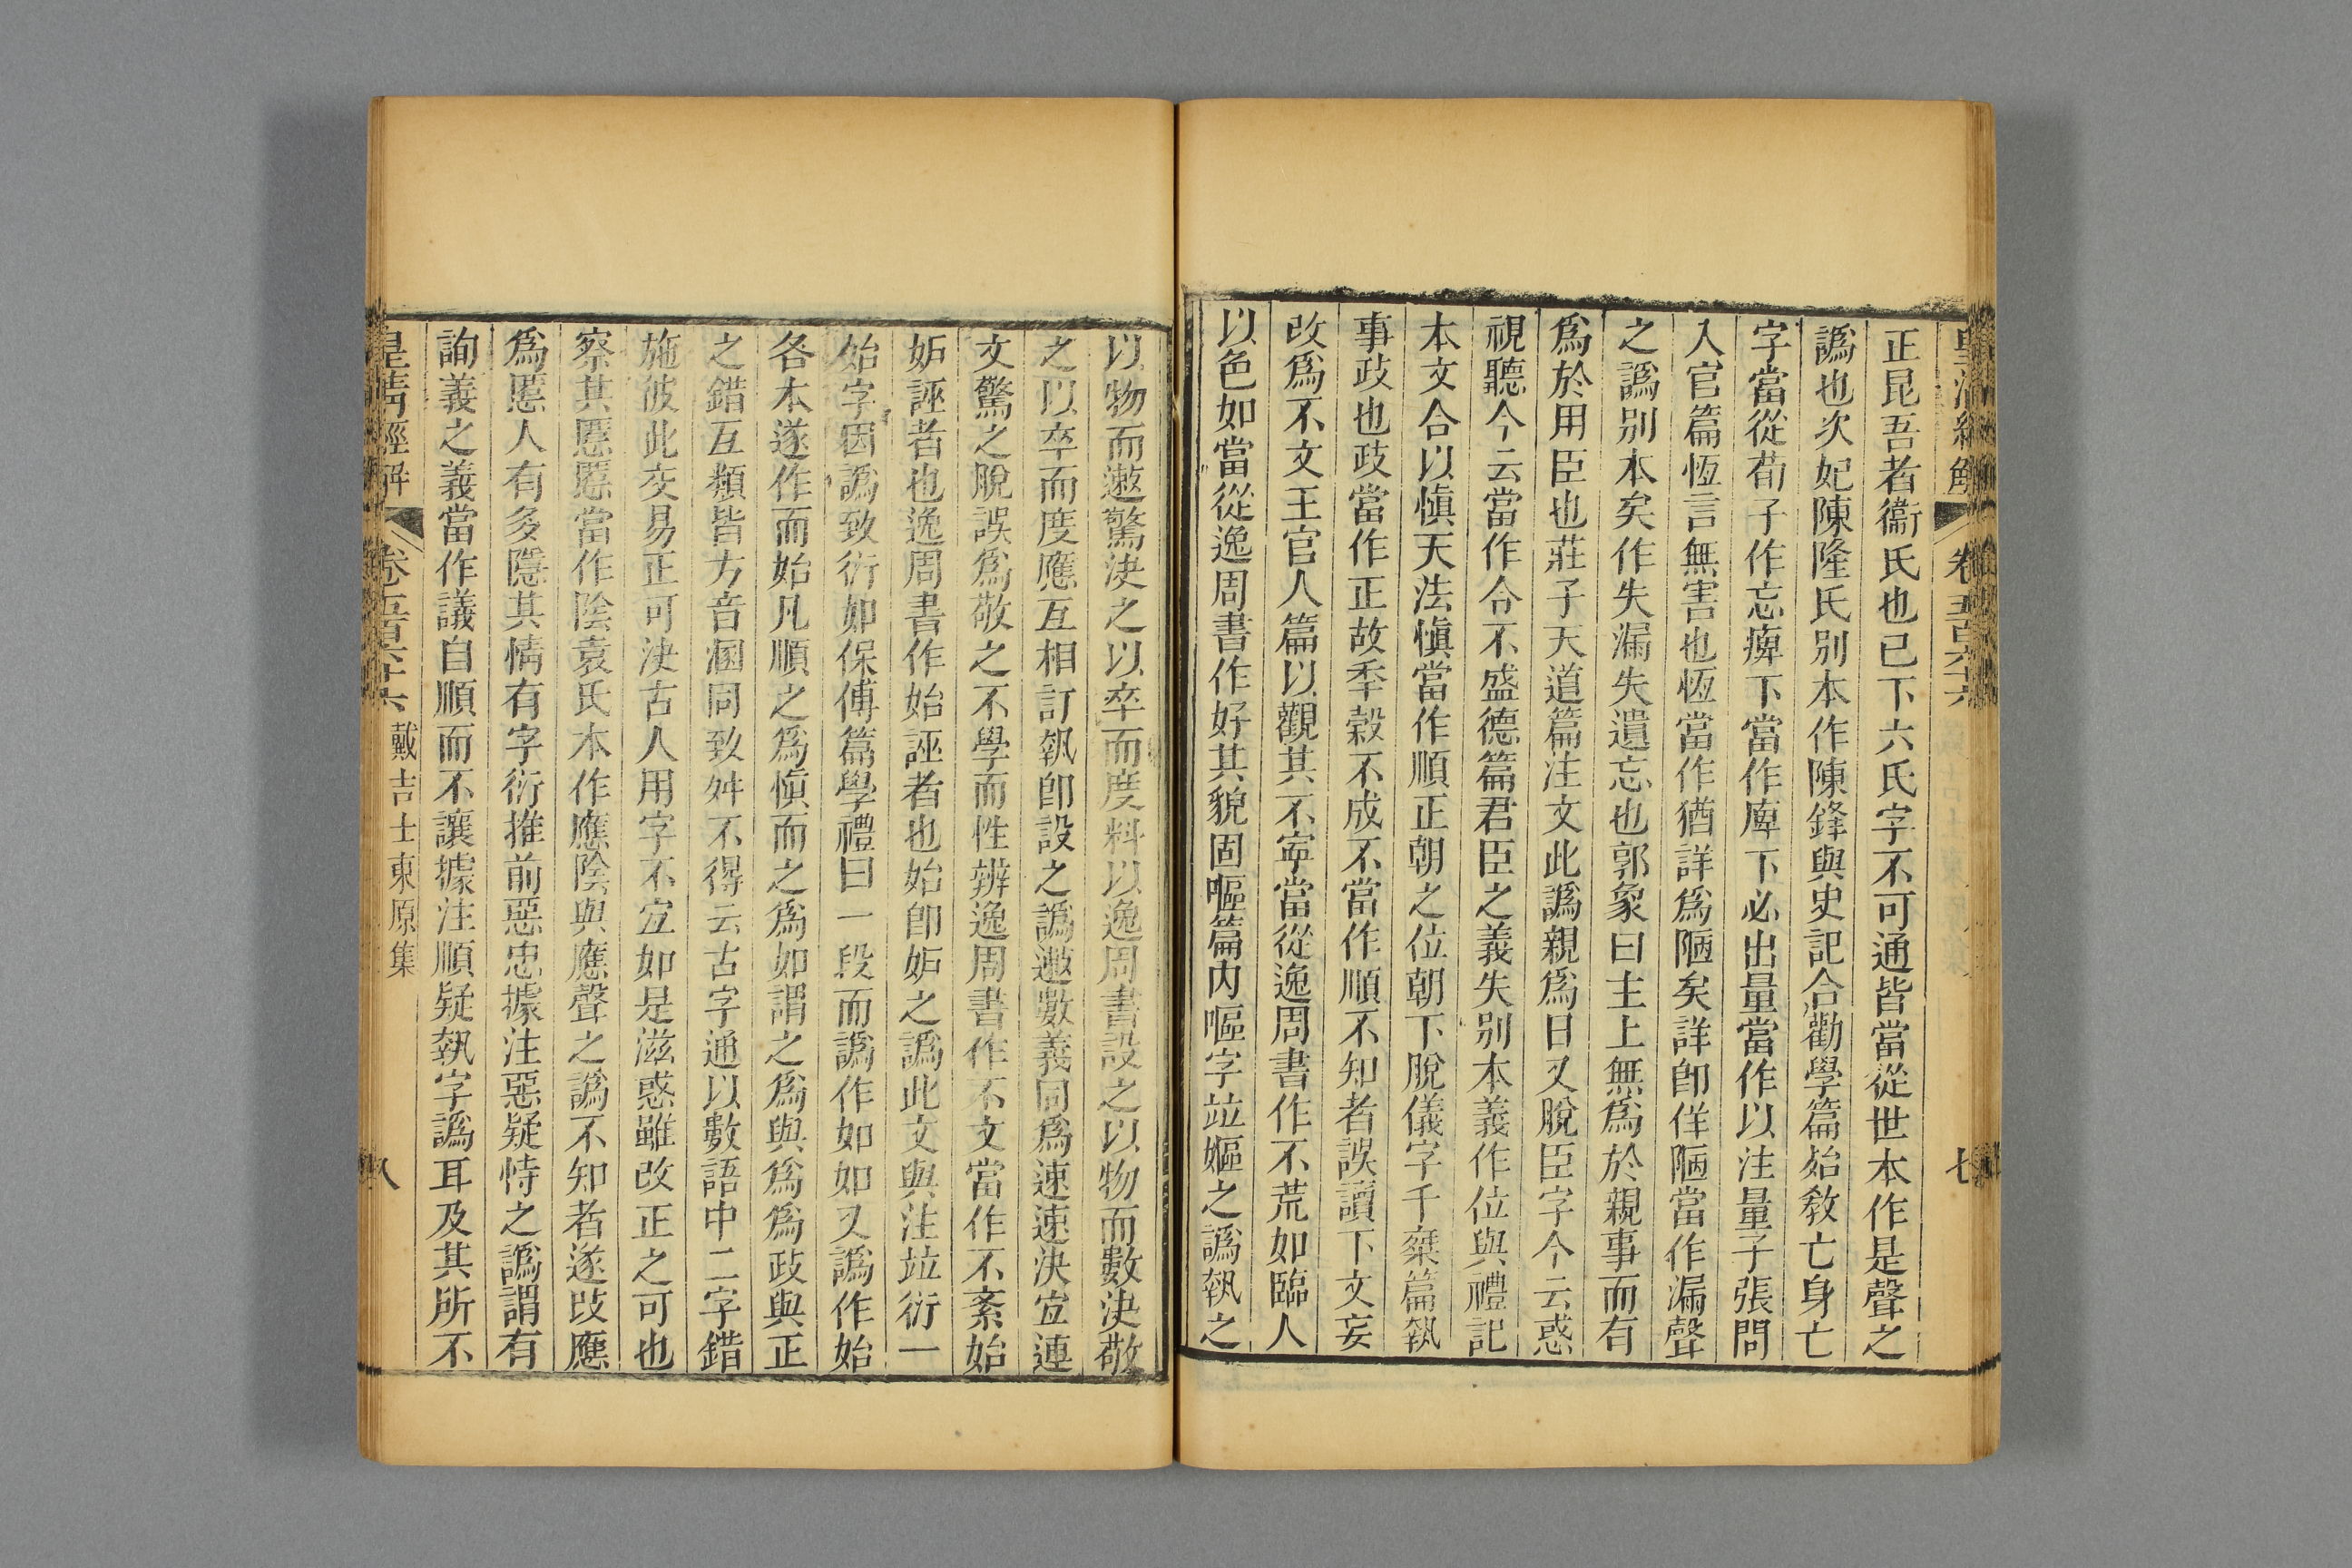 皇清經解 卷五百六十六 七
正昆吾者衞氏也已下六氏字不可通皆當從世本作是聲之
譌也次妃陳隆氏别本作陳鋒與史記合勸學篇始敎亡身亡
字當從荀子作忘痺下當作庳下必出量當作以注量子張問
入官篇恆言無害也恆當作猶詳爲陋矣詳卽佯陋當作漏聲
之譌别本矣作失漏失遺忘也郭象曰主上無爲於親事而有
爲於用臣也莊子天道篇注文此譌親爲日又脫臣字今云惑
視聽今云當作令不盛德篇君臣之義失别本義作位與禮記
本文合以愼天法愼當作順正朝之位朝下脫儀字千椉篇執
事政也政當作正故季穀不成不當作順不知者誤讀下文妄
改爲不文王官人篇以觀其不寧當從逸周書作不荒如臨人
以色如當從逸周書作好其貌固嘔篇内嘔字竝嫗之譌執之
以物而遬驚決之以卒而度料以逸周書設之以物而數決敬
之以卒而度應互相訂執卽設之譌遬數義同爲速速決宜連
文驚之脫誤爲敬之不學而性辨逸周書作不文當作不紊始
妒誣者也逸周書作始誣者也始卽妒之譌此文與注竝衍一
始字因譌致衍如保傅篇學禮曰一段而譌作如如又譌作始
各本遂作而始凡順之爲愼而之爲如謂之爲與爲爲政與正
之錯互類皆方音溷同致舛不得云古字通以數語中二字錯
施彼此交易正可決古人用字不宜如是滋惑雖改正之可也
察其慝慝當作陰袁氏本作應陰與應聲之譌不知者遂改應
爲慝人有多隱其情有字衍推前惡忠據注惡疑恃之譌謂有
詢義之義當作議自順而不讓據注順疑執字譌耳及其所不
皇清經解 卷五百六十六 戴吉士東原集 八